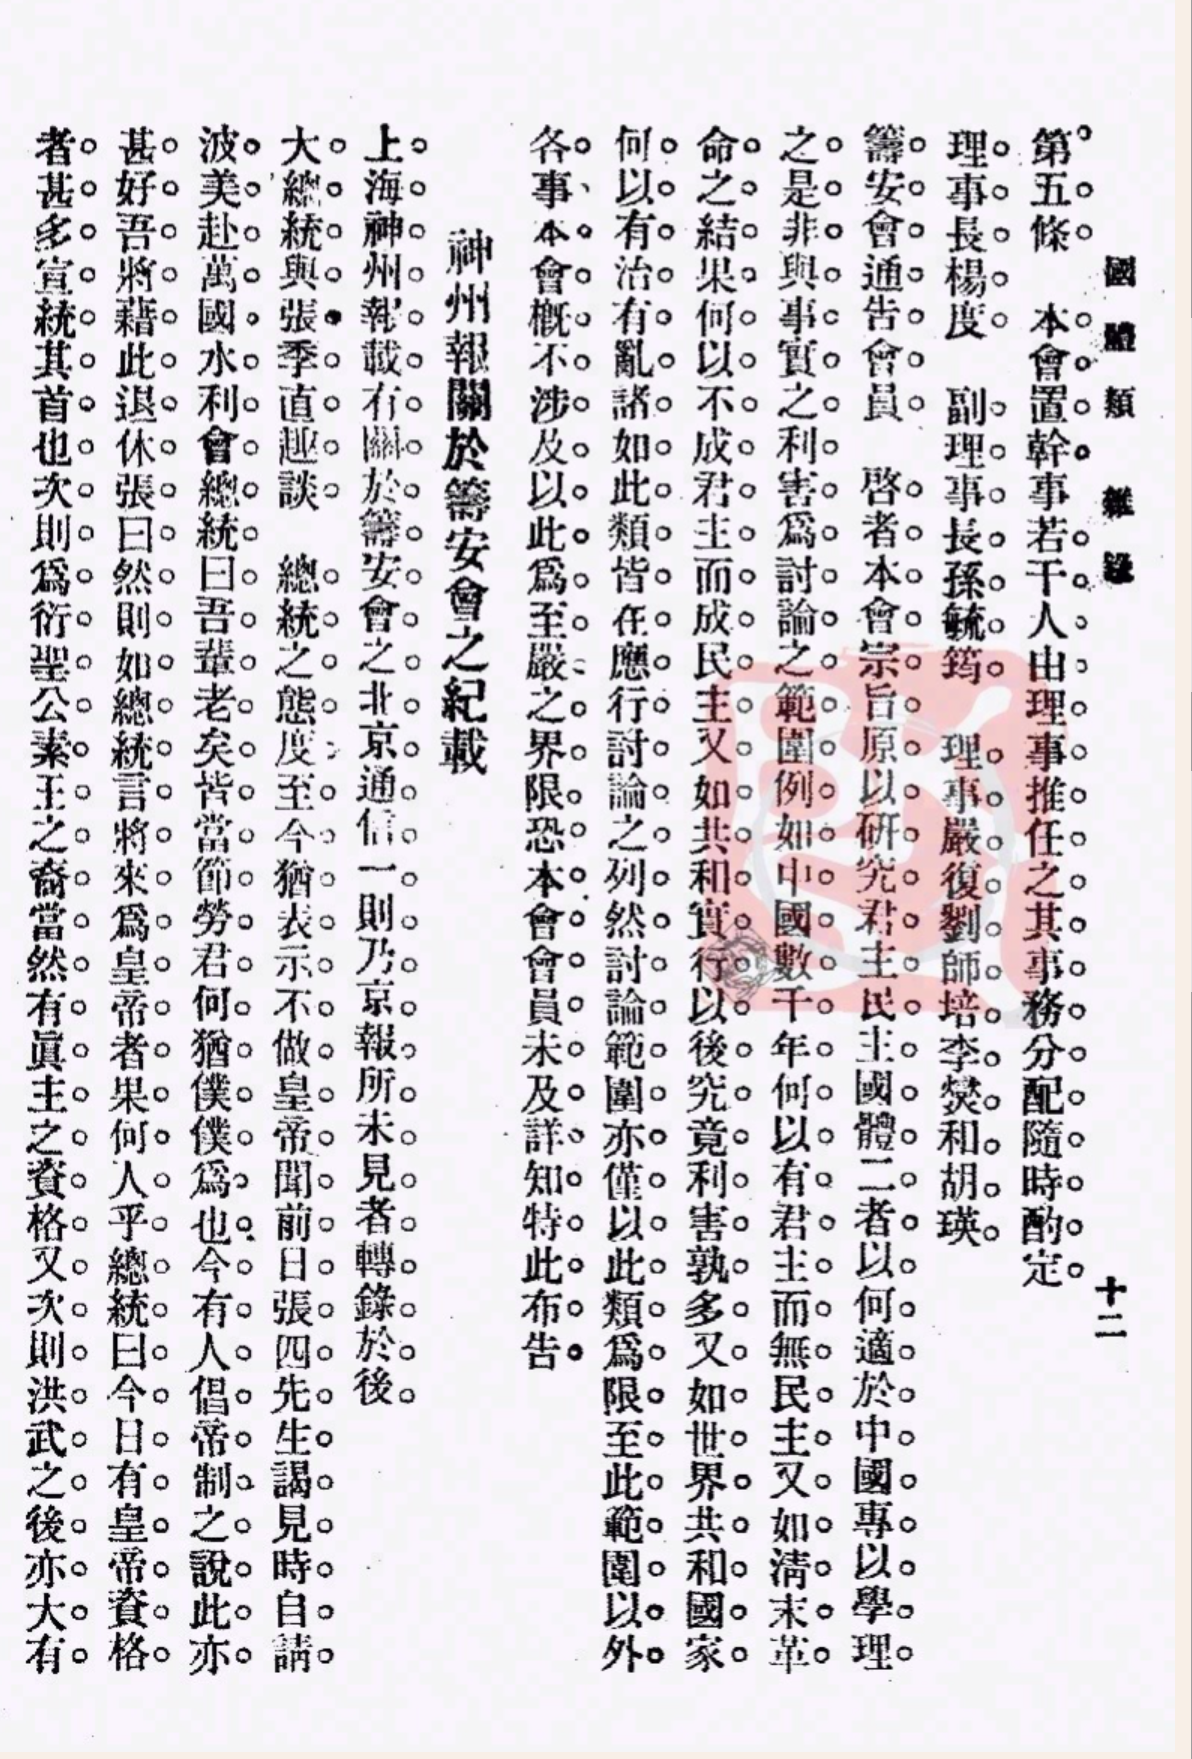 國體類雜錄
十二
第五條　本會置幹事若干人由理事推任之其事務分配隨時酌定
理事長楊度　副理事長孫毓筠　理事嚴復劉師培李燮和胡瑛
籌安會通告會員　啓者本會宗旨原以研究君主民主國體二者以何適於中國專以學理
之是非與事實之利害爲討論之範圍例如中國數千年何以有君主而無民主又如淸末革
命之結果何以不成君主而成民主又如共和實行以後究竟利害孰多又如世界共和國家
何以有治有亂諸如此類皆在應行討論之列然討論範圍亦僅以此類爲限至此範圍以外
各事本會槪不涉及以此爲至嚴之界限恐本會會員未及詳知特此布告
神州報關於籌安會之紀載
上海神州報載有關於籌安會之北京通信一則乃京報所未見者轉錄於後
大總統與張季直趣談　總統之態度至今猶表示不做皇帝聞前日張四先生謁見時自請
波美赴萬國水利會總統曰吾輩老矣皆當節勞君何猶僕僕爲也今有人倡帝制之說此亦
甚好吾將藉此退休張曰然則如總統言將來爲皇帝者果何人乎總統曰今日有皇帝資格
者甚多宣統其首也次則爲衍聖公素王之裔當然有眞主之資格又次則洪武之後亦大有